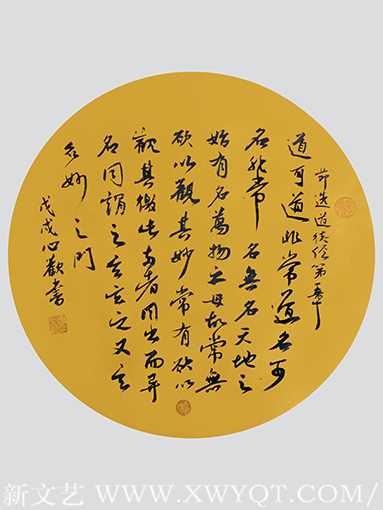 节选道德经第一章
道可道非常道名可
名非常名無名天地之
始有名萬物之母故常無
欲以觀其妙常有欲以
觀其徼此兩者同出而異
名同謂之玄玄之又玄
众妙之門
戊戌心歡書
新文艺 WWW.XWYQT.COM